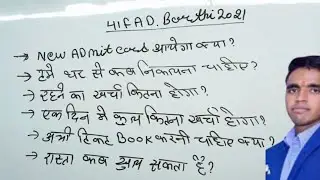 41FAD. Barthi 2021
→ New Admit card आयेगा क्या?
→ हमे घर से कब निकालना चाहिए?
→ रहने का खर्चा कितना होगा?
→ एक दिन मे कुल कितना खर्चा होगा?
→ अभी टिकट Book करनी चाहिए क्या?
→ रास्ता कब खुल सकता है?